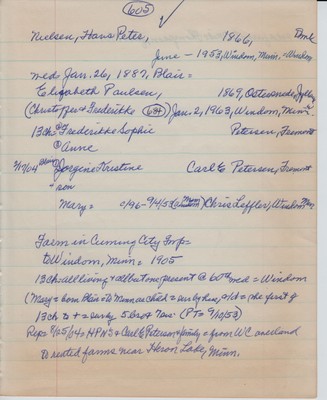 605
Nielsen, Hans Peter, 1866, Dmk
June - 1953, Windom, Minn. = Windom
med Jan. 26, 1887, Blair =
Elizabeth Paulsen, 1869, Jylland
(Christoffer & Frederikke 684) Jan. 2, 1963, Windom, Minn.
13ch: Frederikke Sophie Petersen, Fremont
Anne
2/17/04 Jorgine Kristine Carl E Petersen, Fremont
son
Mary = c/96 - 9/4/53 Chris Leffler, Windom Minn
Farm in Cuming City Twp =
to Windom, Minn = 1905
13ch = all living & all but one present @ 60th med = Windom
(Mary = born Blair = to Minn as child = as = the first of
13ch to + = 5 bro & 7 sis (PT = 9/10/53)
Rep = 8/25/04 = HPNS & Carl E Petersen & family = from WC overland
to rented farms near Heron Lake, Minn.